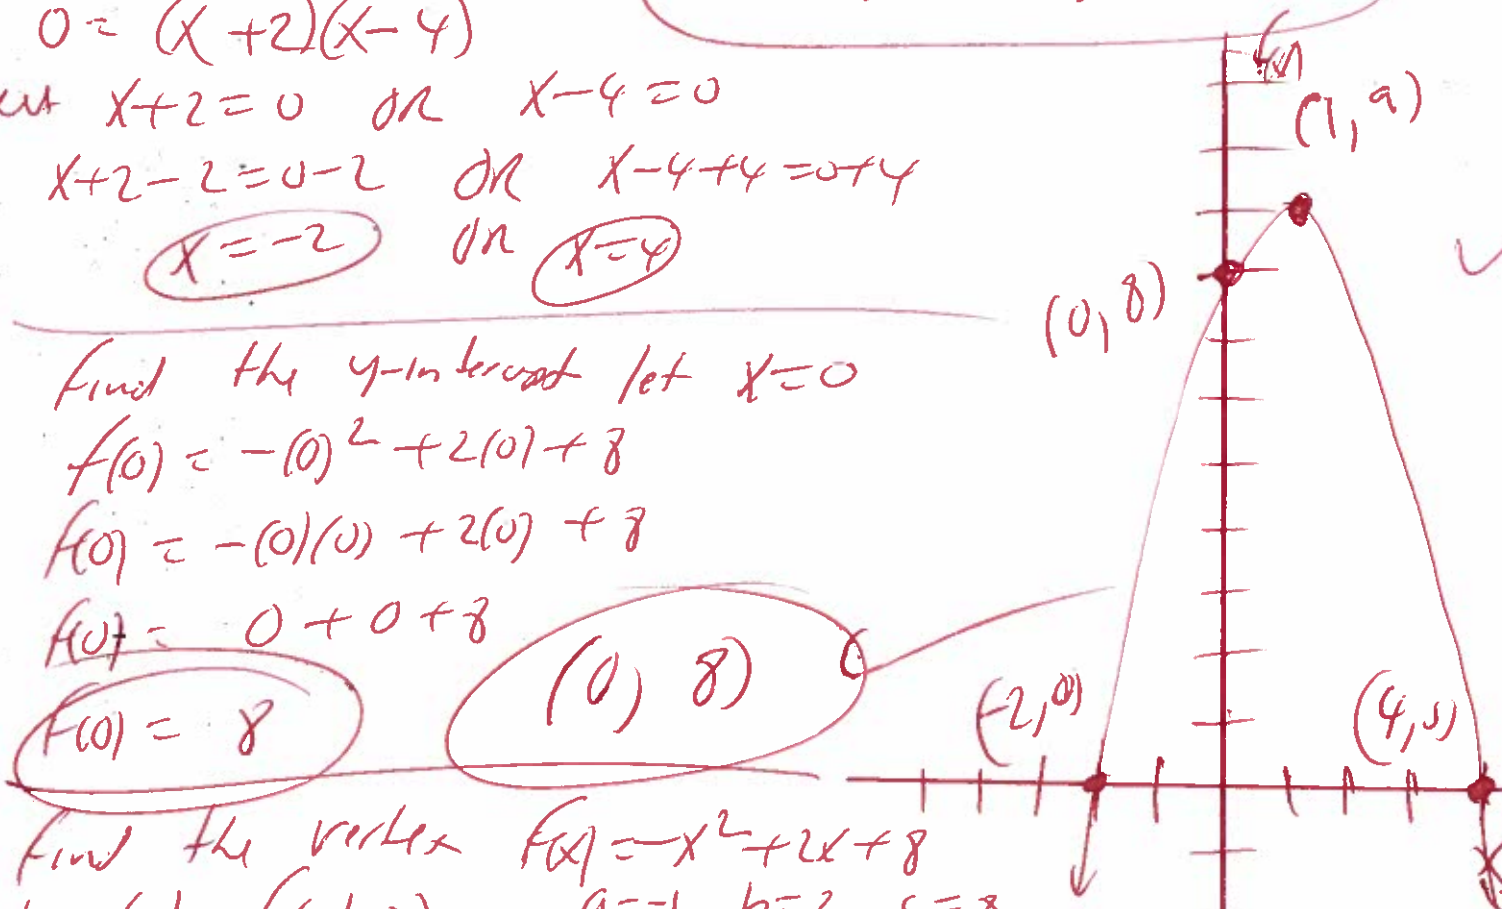 0 = (x+2)(x-4)
x+2=0 or x-4=0
x+2-2=0-2 or x-4+4=0+4
x=-2 or x=4
Find the y-intercept let x=0
f(0) = -(0)² + 2(0) + 8
f(0) = -(0)(0) + 2(0) + 8
f(0) = 0+0+8
f(0) = 8
(0, 8)
Find the vertex f(x) = -x²+2x+8
a=-1 b=2 c=8
(1, 9)
(0, 8)
(-2, 0)
(4, 0)
x